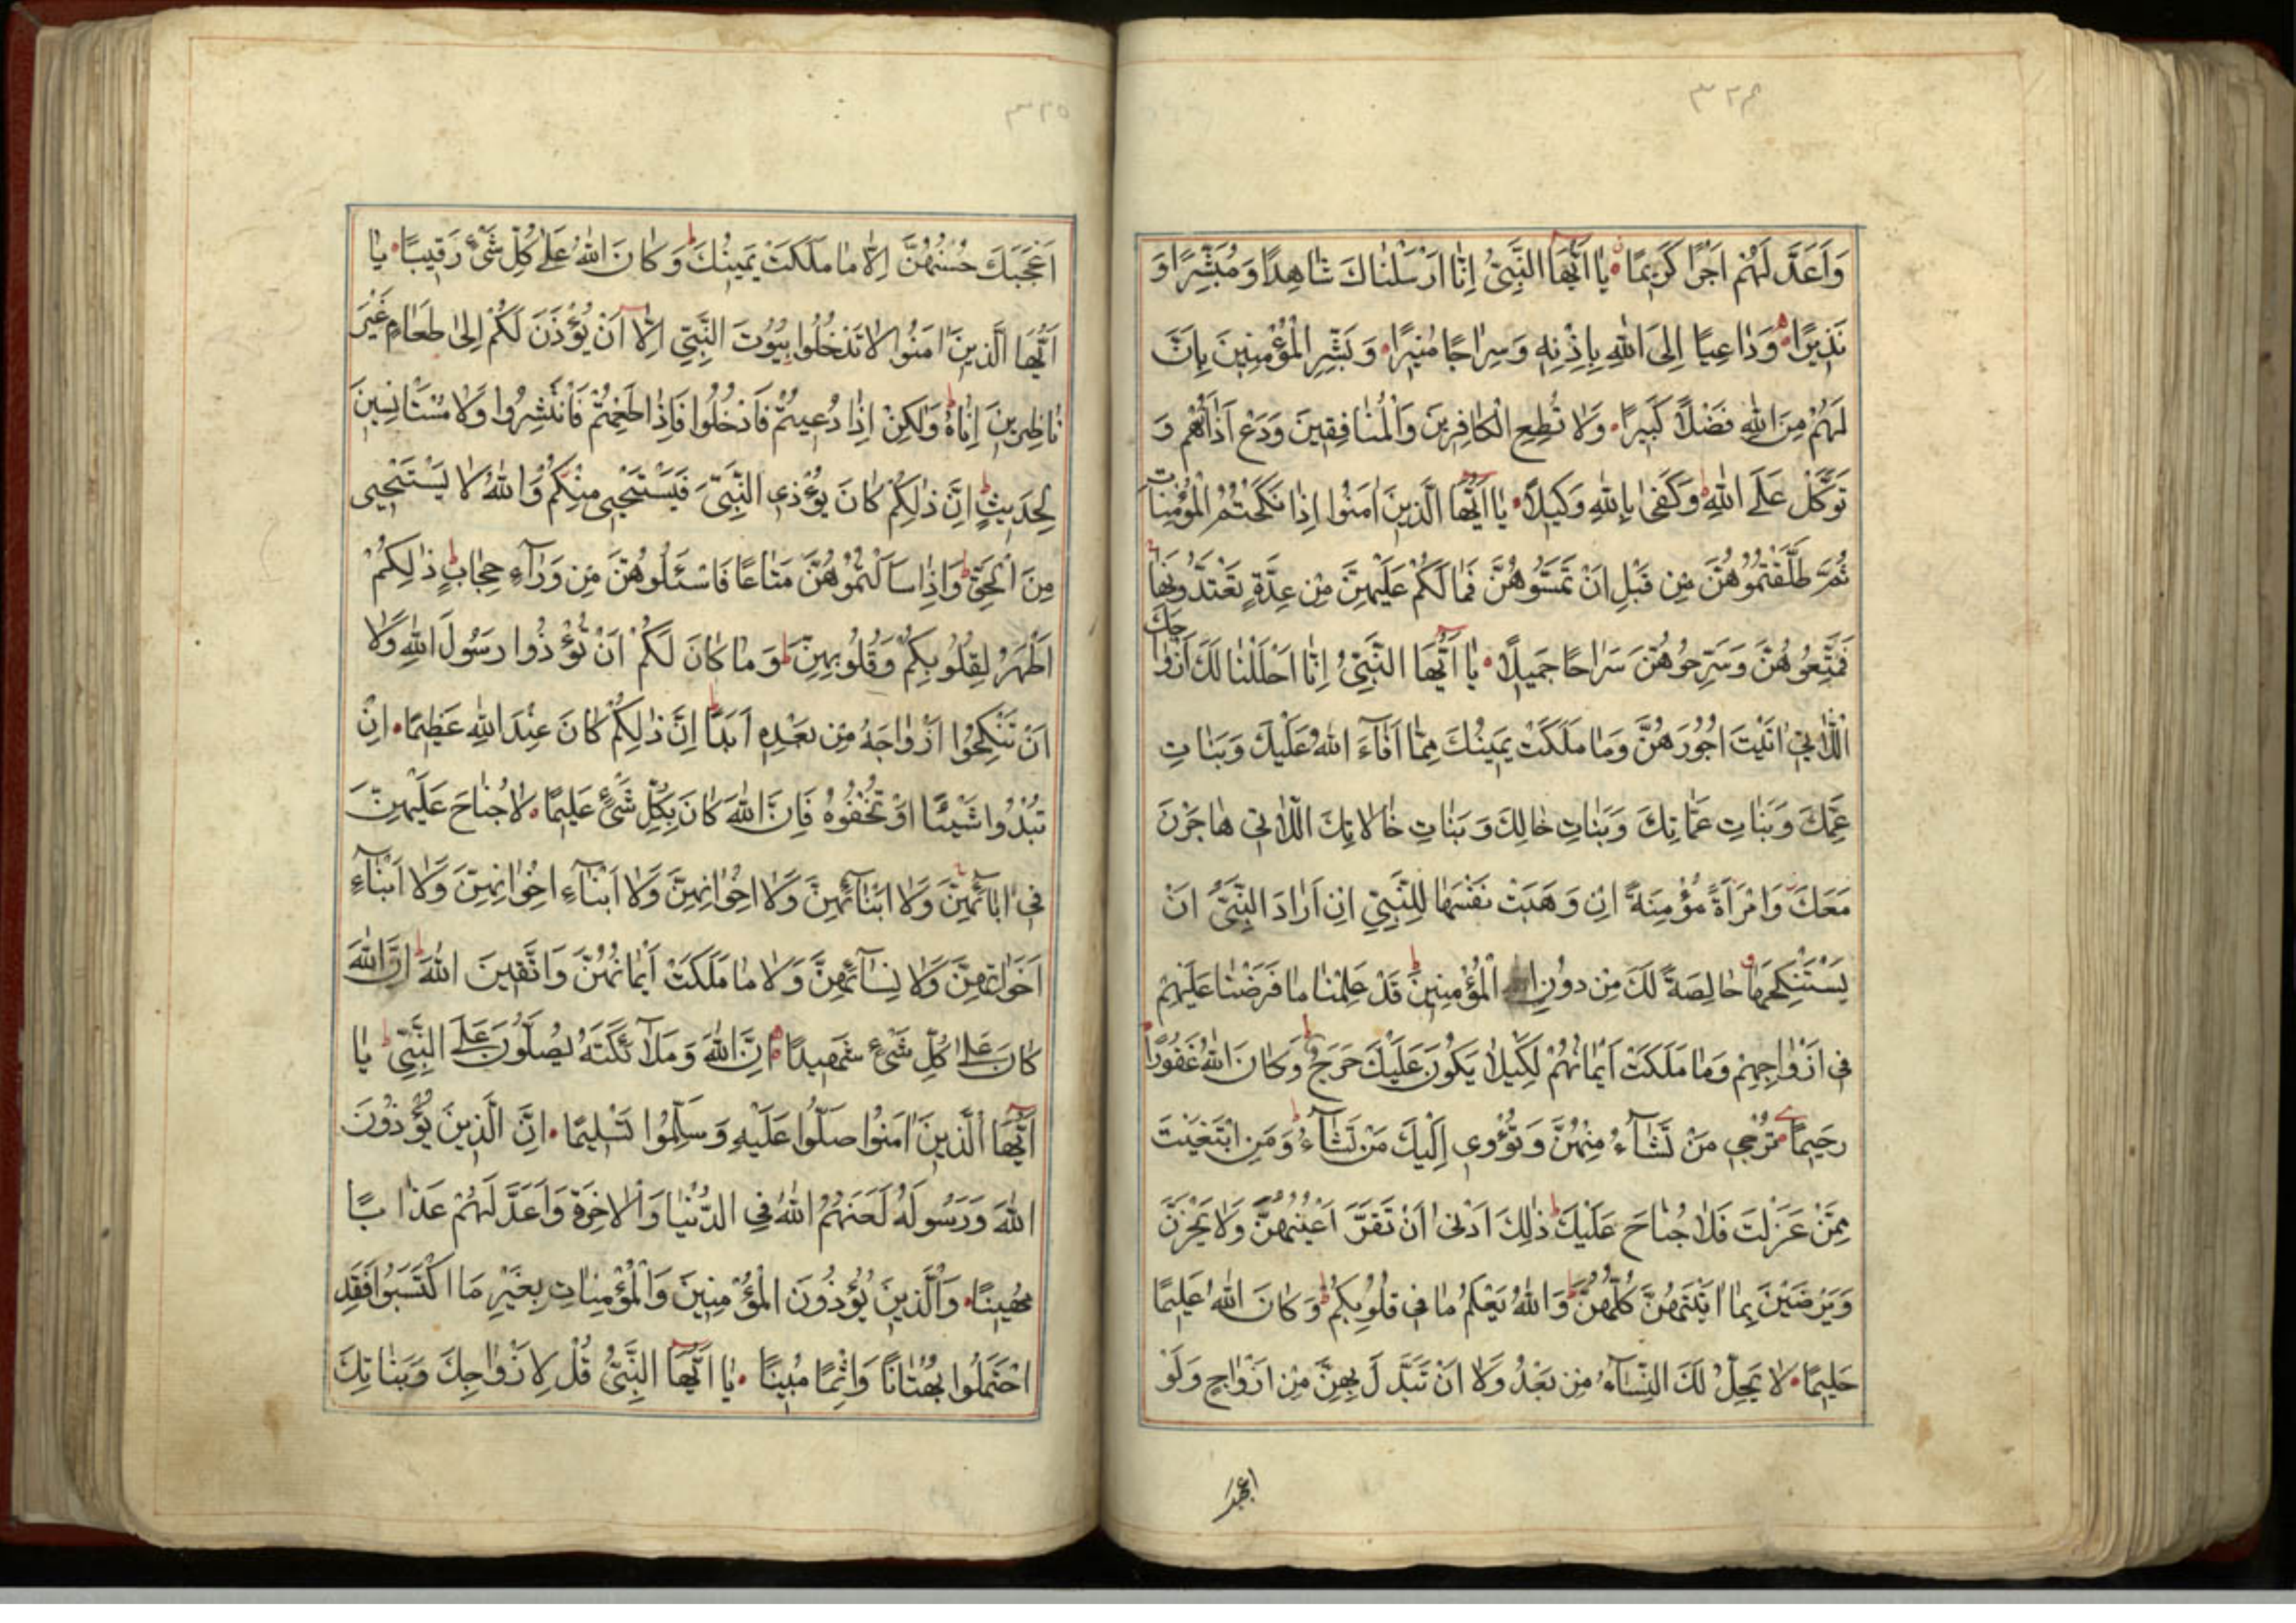 ٣٢٤
وَاَعَدَّ لَهُمْ اَجْرًا كَرِيمًا يَا اَيُّهَا النَّبِيُّ اِنَّا اَرْسَلْنَاكَ شَاهِدًا وَمُبَشِّرًا وَ
نَذِيرًا وَدَاعِيًا اِلَى اللّٰهِ بِاِذْنِهِ وَسِرَاجًا مُنِيرًا وَبَشِّرِ الْمُؤْمِنِينَ بِاَنَّ
لَهُمْ مِنَ اللّٰهِ فَضْلًا كَبِيرًا وَلَا تُطِعِ الْكَافِرِينَ وَالْمُنَافِقِينَ وَدَعْ اَذَاهُمْ وَ
تَوَكَّلْ عَلَى اللّٰهِ وَكَفَى بِاللّٰهِ وَكِيلًا يَا اَيُّهَا الَّذِينَ اٰمَنُوا اِذَا نَكَحْتُمُ الْمُؤْمِنَاتِ
ثُمَّ طَلَّقْتُمُوهُنَّ مِنْ قَبْلِ اَنْ تَمَسُّوهُنَّ فَمَا لَكُمْ عَلَيْهِنَّ مِنْ عِدَّةٍ تَعْتَدُّونَهَا
فَمَتِّعُوهُنَّ وَسَرِّحُوهُنَّ سَرَاحًا جَمِيلًا يَا اَيُّهَا النَّبِيُّ اِنَّا اَحْلَلْنَا لَكَ اَزْوَاجَكَ
اللَّاتِي اٰتَيْتَ اُجُورَهُنَّ وَمَا مَلَكَتْ يَمِينُكَ مِمَّا اَفَاءَ اللّٰهُ عَلَيْكَ وَبَنَاتِ
عَمِّكَ وَبَنَاتِ عَمَّاتِكَ وَبَنَاتِ خَالِكَ وَبَنَاتِ خَالَاتِكَ اللَّاتِي هَاجَرْنَ
مَعَكَ وَامْرَاَةً مُؤْمِنَةً اِنْ وَهَبَتْ نَفْسَهَا لِلنَّبِيِّ اِنْ اَرَادَ النَّبِيُّ اَنْ
يَسْتَنْكِحَهَا خَالِصَةً لَكَ مِنْ دُونِ الْمُؤْمِنِينَ قَدْ عَلِمْنَا مَا فَرَضْنَا عَلَيْهِمْ
فِي اَزْوَاجِهِمْ وَمَا مَلَكَتْ اَيْمَانُهُمْ لِكَيْلَا يَكُونَ عَلَيْكَ حَرَجٌ وَكَانَ اللّٰهُ غَفُورًا
رَحِيمًا تُرْجِي مَنْ تَشَاءُ مِنْهُنَّ وَتُؤْوِي اِلَيْكَ مَنْ تَشَاءُ وَمَنِ ابْتَغَيْتَ
مِمَّنْ عَزَلْتَ فَلَا جُنَاحَ عَلَيْكَ ذٰلِكَ اَدْنٰى اَنْ تَقَرَّ اَعْيُنُهُنَّ وَلَا يَحْزَنَّ
وَيَرْضَيْنَ بِمَا اٰتَيْتَهُنَّ كُلُّهُنَّ وَاللّٰهُ يَعْلَمُ مَا فِي قُلُوبِكُمْ وَكَانَ اللّٰهُ عَلِيمًا
حَلِيمًا لَا يَحِلُّ لَكَ النِّسَاءُ مِنْ بَعْدُ وَلَا اَنْ تَبَدَّلَ بِهِنَّ مِنْ اَزْوَاجٍ وَلَوْ
٣٢٥
اَعْجَبَكَ حُسْنُهُنَّ اِلَّا مَا مَلَكَتْ يَمِينُكَ وَكَانَ اللّٰهُ عَلَى كُلِّ شَيْءٍ رَقِيبًا يَا
اَيُّهَا الَّذِينَ اٰمَنُوا لَا تَدْخُلُوا بُيُوتَ النَّبِيِّ اِلَّا اَنْ يُؤْذَنَ لَكُمْ اِلٰى طَعَامٍ غَيْرَ
نَاظِرِينَ اِنَاهُ وَلٰكِنْ اِذَا دُعِيتُمْ فَادْخُلُوا فَاِذَا طَعِمْتُمْ فَانْتَشِرُوا وَلَا مُسْتَاْنِسِينَ
لِحَدِيثٍ اِنَّ ذٰلِكُمْ كَانَ يُؤْذِي النَّبِيَّ فَيَسْتَحْيِي مِنْكُمْ وَاللّٰهُ لَا يَسْتَحْيِي
مِنَ الْحَقِّ وَاِذَا سَاَلْتُمُوهُنَّ مَتَاعًا فَاسْئَلُوهُنَّ مِنْ وَرَاءِ حِجَابٍ ذٰلِكُمْ
اَطْهَرُ لِقُلُوبِكُمْ وَقُلُوبِهِنَّ وَمَا كَانَ لَكُمْ اَنْ تُؤْذُوا رَسُولَ اللّٰهِ وَلَا
اَنْ تَنْكِحُوا اَزْوَاجَهُ مِنْ بَعْدِهِ اَبَدًا اِنَّ ذٰلِكُمْ كَانَ عِنْدَ اللّٰهِ عَظِيمًا اِنْ
تُبْدُوا شَيْئًا اَوْ تُخْفُوهُ فَاِنَّ اللّٰهَ كَانَ بِكُلِّ شَيْءٍ عَلِيمًا لَا جُنَاحَ عَلَيْهِنَّ
فِي اٰبَائِهِنَّ وَلَا اَبْنَائِهِنَّ وَلَا اِخْوَانِهِنَّ وَلَا اَبْنَاءِ اِخْوَانِهِنَّ وَلَا اَبْنَاءِ
اَخَوَاتِهِنَّ وَلَا نِسَائِهِنَّ وَلَا مَا مَلَكَتْ اَيْمَانُهُنَّ وَاتَّقِينَ اللّٰهَ اِنَّ اللّٰهَ
كَانَ عَلَى كُلِّ شَيْءٍ شَهِيدًا اِنَّ اللّٰهَ وَمَلَائِكَتَهُ يُصَلُّونَ عَلَى النَّبِيِّ يَا
اَيُّهَا الَّذِينَ اٰمَنُوا صَلُّوا عَلَيْهِ وَسَلِّمُوا تَسْلِيمًا اِنَّ الَّذِينَ يُؤْذُونَ
اللّٰهَ وَرَسُولَهُ لَعَنَهُمُ اللّٰهُ فِي الدُّنْيَا وَالْاٰخِرَةِ وَاَعَدَّ لَهُمْ عَذَابًا
مُهِينًا وَالَّذِينَ يُؤْذُونَ الْمُؤْمِنِينَ وَالْمُؤْمِنَاتِ بِغَيْرِ مَا اكْتَسَبُوا فَقَدِ
احْتَمَلُوا بُهْتَانًا وَاِثْمًا مُبِينًا يَا اَيُّهَا النَّبِيُّ قُلْ لِاَزْوَاجِكَ وَبَنَاتِكَ